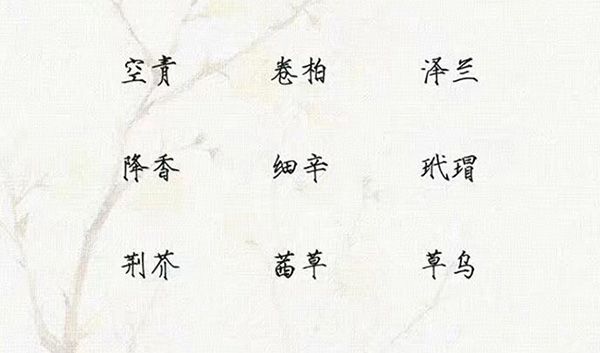 空青 卷柏 泽兰
降香 细辛 玳瑁
荆芥 茜草 草乌